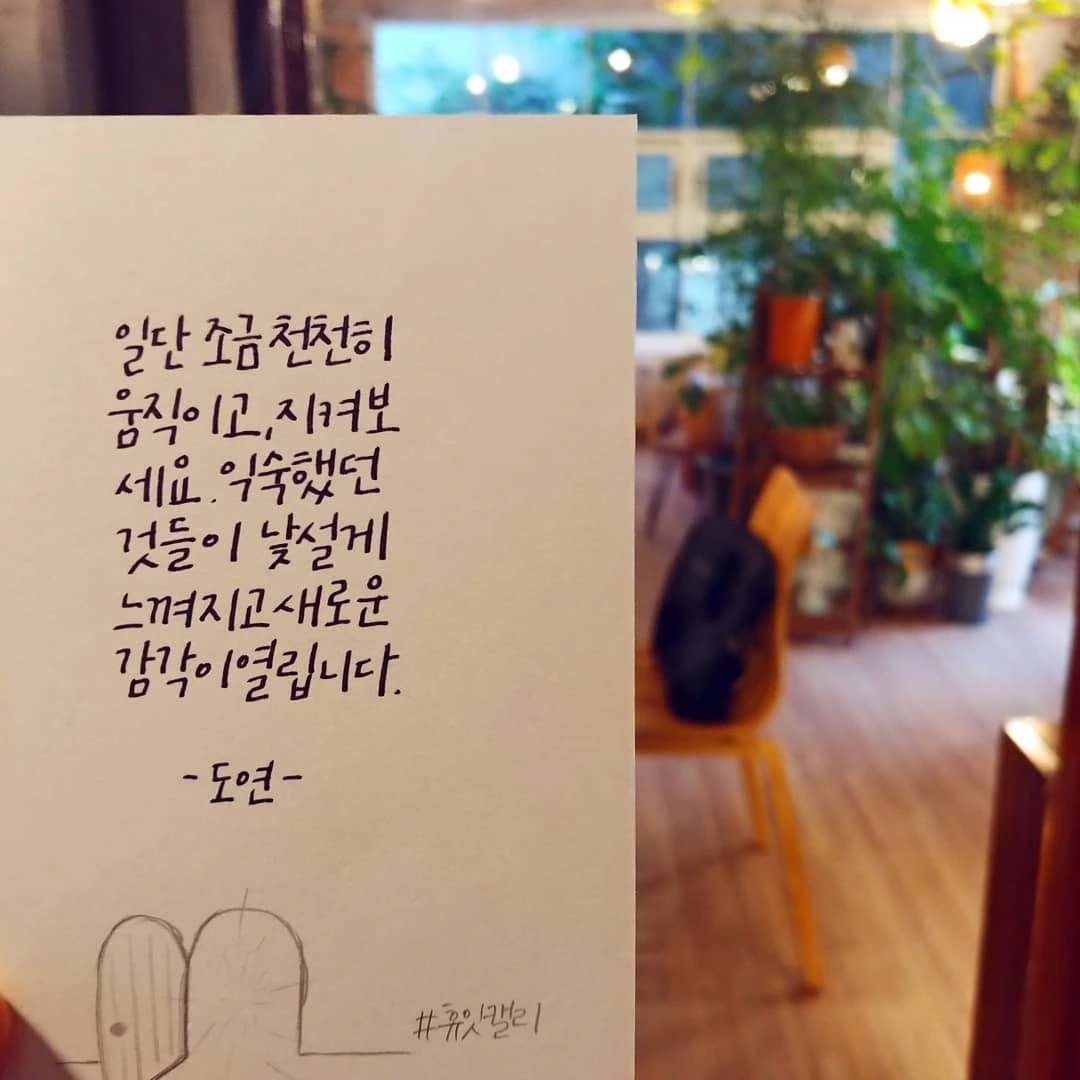 일단 조금 천천히
움직이고, 지켜보
세요. 익숙했던
것들이 낯설게
느껴지고 새로운
감각이 열립니다.
- 도연 -
#휴잇캘리